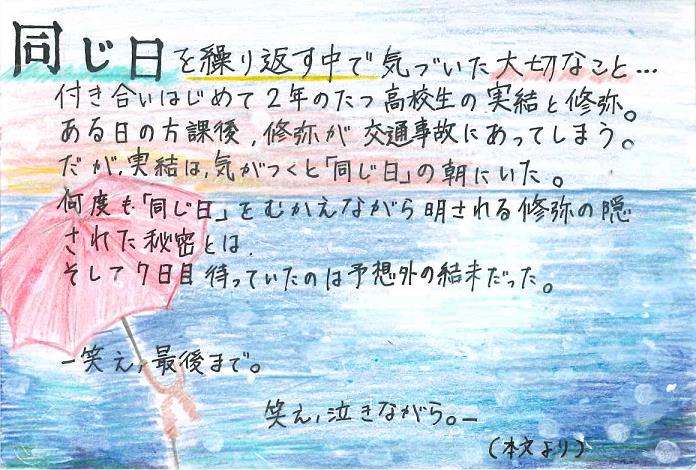 同じ日を繰り返す中で気づいた大切なこと…
付き合いはじめて2年のたつ高校生の実結と修弥。
ある日の方課後,修弥が交通事故にあってしまう。
だが,実結は,気がつくと「同じ日」の朝にいた。
何度も「同じ日」をむかえながら明される修弥の隠
された秘密とは,
そして7日目待っていたのは予想外の結末だった。
―笑え,最後まで。
笑え,泣きながら。―
(本文より)